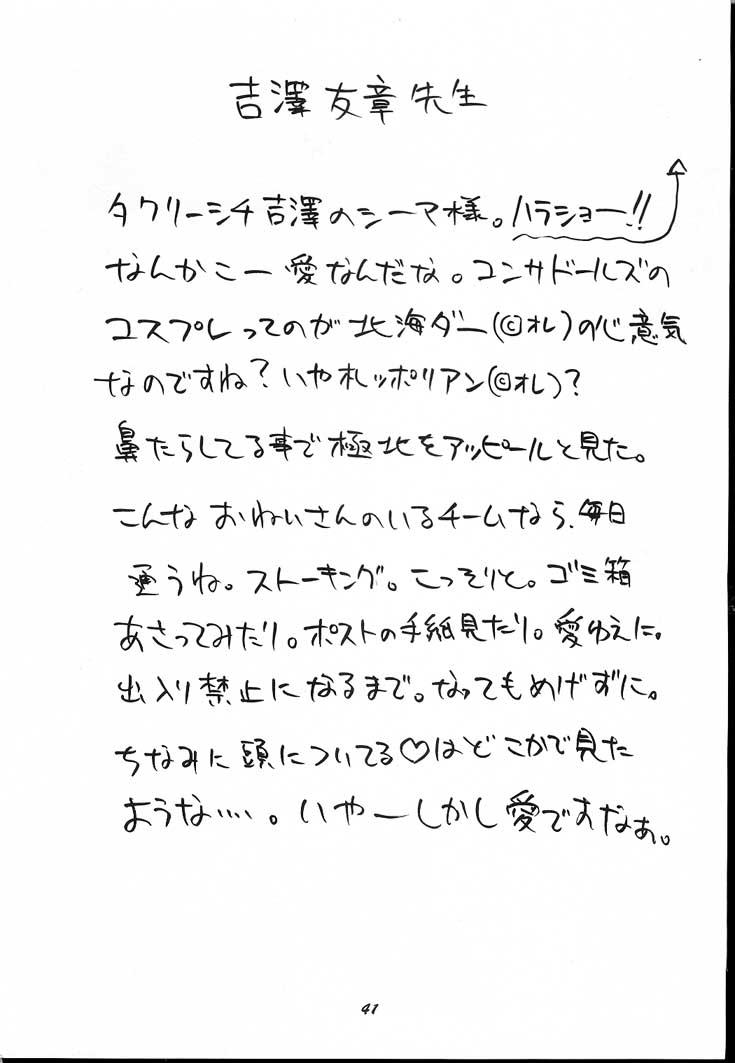 吉澤友章先生
タクリーシチ吉澤のシーマ様。ハラショー!!
なんかこー愛なんだな。コンサドールズの
コスプレってのが北海ダー(©オレ)の心意気
なのですね?いや札ッポリアン(©オレ)?
鼻たらしてる事で極北をアッピールと見た。
こんなおねいさんのいるチームなら、毎日
通うね。ストーキング。こっそりと。ゴミ箱
あさってみだり。ポストの手紙見だり。愛ゆえに。
出入り禁止になるまで。なってもめげずに。
ちなみに頭についてる♡はどこかで見た
ような....。いやーしかし愛ですなぁ。
41